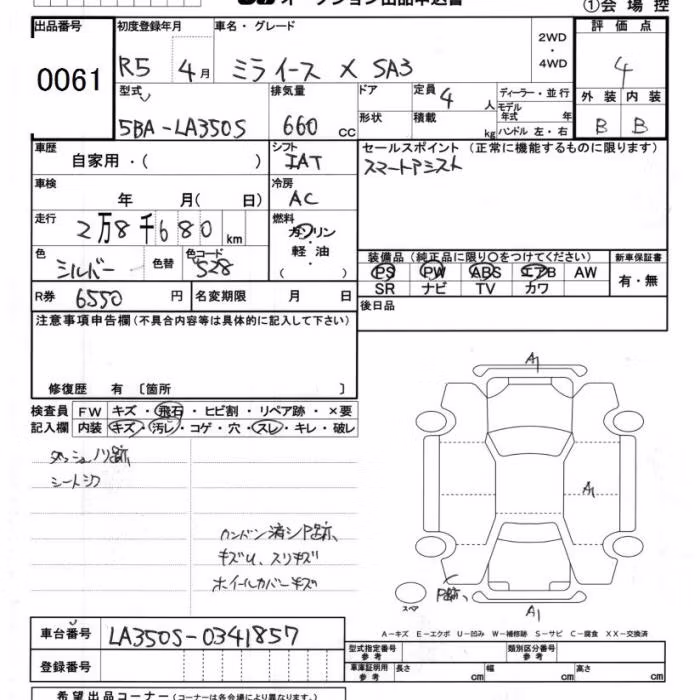 オークション出品申込書
①会場控
出品番号 初度登録年月 車名・グレード 評価点
0061 R5 4月 ミライース X SA3 2WD・4WD 4
型式 排気量 ドア 定員 4人 ディーラー・並行 外装 内装
5BA-LA350S 660cc 形状 積載 kg モデル年式 年 B B
ハンドル 左・右
車歴 シフト セールスポイント(正常に機能するものに限ります)
自家用・( ) IAT スマートアシスト
車検 冷房
年 月( 日) AC
走行 2万8千680km 燃料
ガソリン・軽油・( )
色 シルバー 色替 色コード S28
装備品(純正品に限り○をつけてください) 新車保証書
PS PW ABS エアB AW 有・無
SR ナビ TV カワ
R券 6550円 名変期限 月 日 後日品
注意事項申告欄(不具合内容等は具体的に記入して下さい)
修復歴 有〔箇所 〕
検査員 FW キズ・飛石・ヒビ割・リペア跡・×要
記入欄 内装 キズ・汚レ・コゲ・穴・スレ・キレ・破レ
ダッシュノリ跡
シートシワ
キズU、スリキズ
ホイールカバーキズ
A1
A1
P跡、
スペア
A1
A-キズ E-エクボ U-凹み W-補修跡 S-サビ C-腐食 XX-交換済
車台番号 LA350S-0341857
登録番号
型式指定番号 参考 類別区分番号 参考
車庫証明用 参考 長さ cm 幅 cm 高さ cm
希望出品コーナー(コーナーは各会場により異なります。)